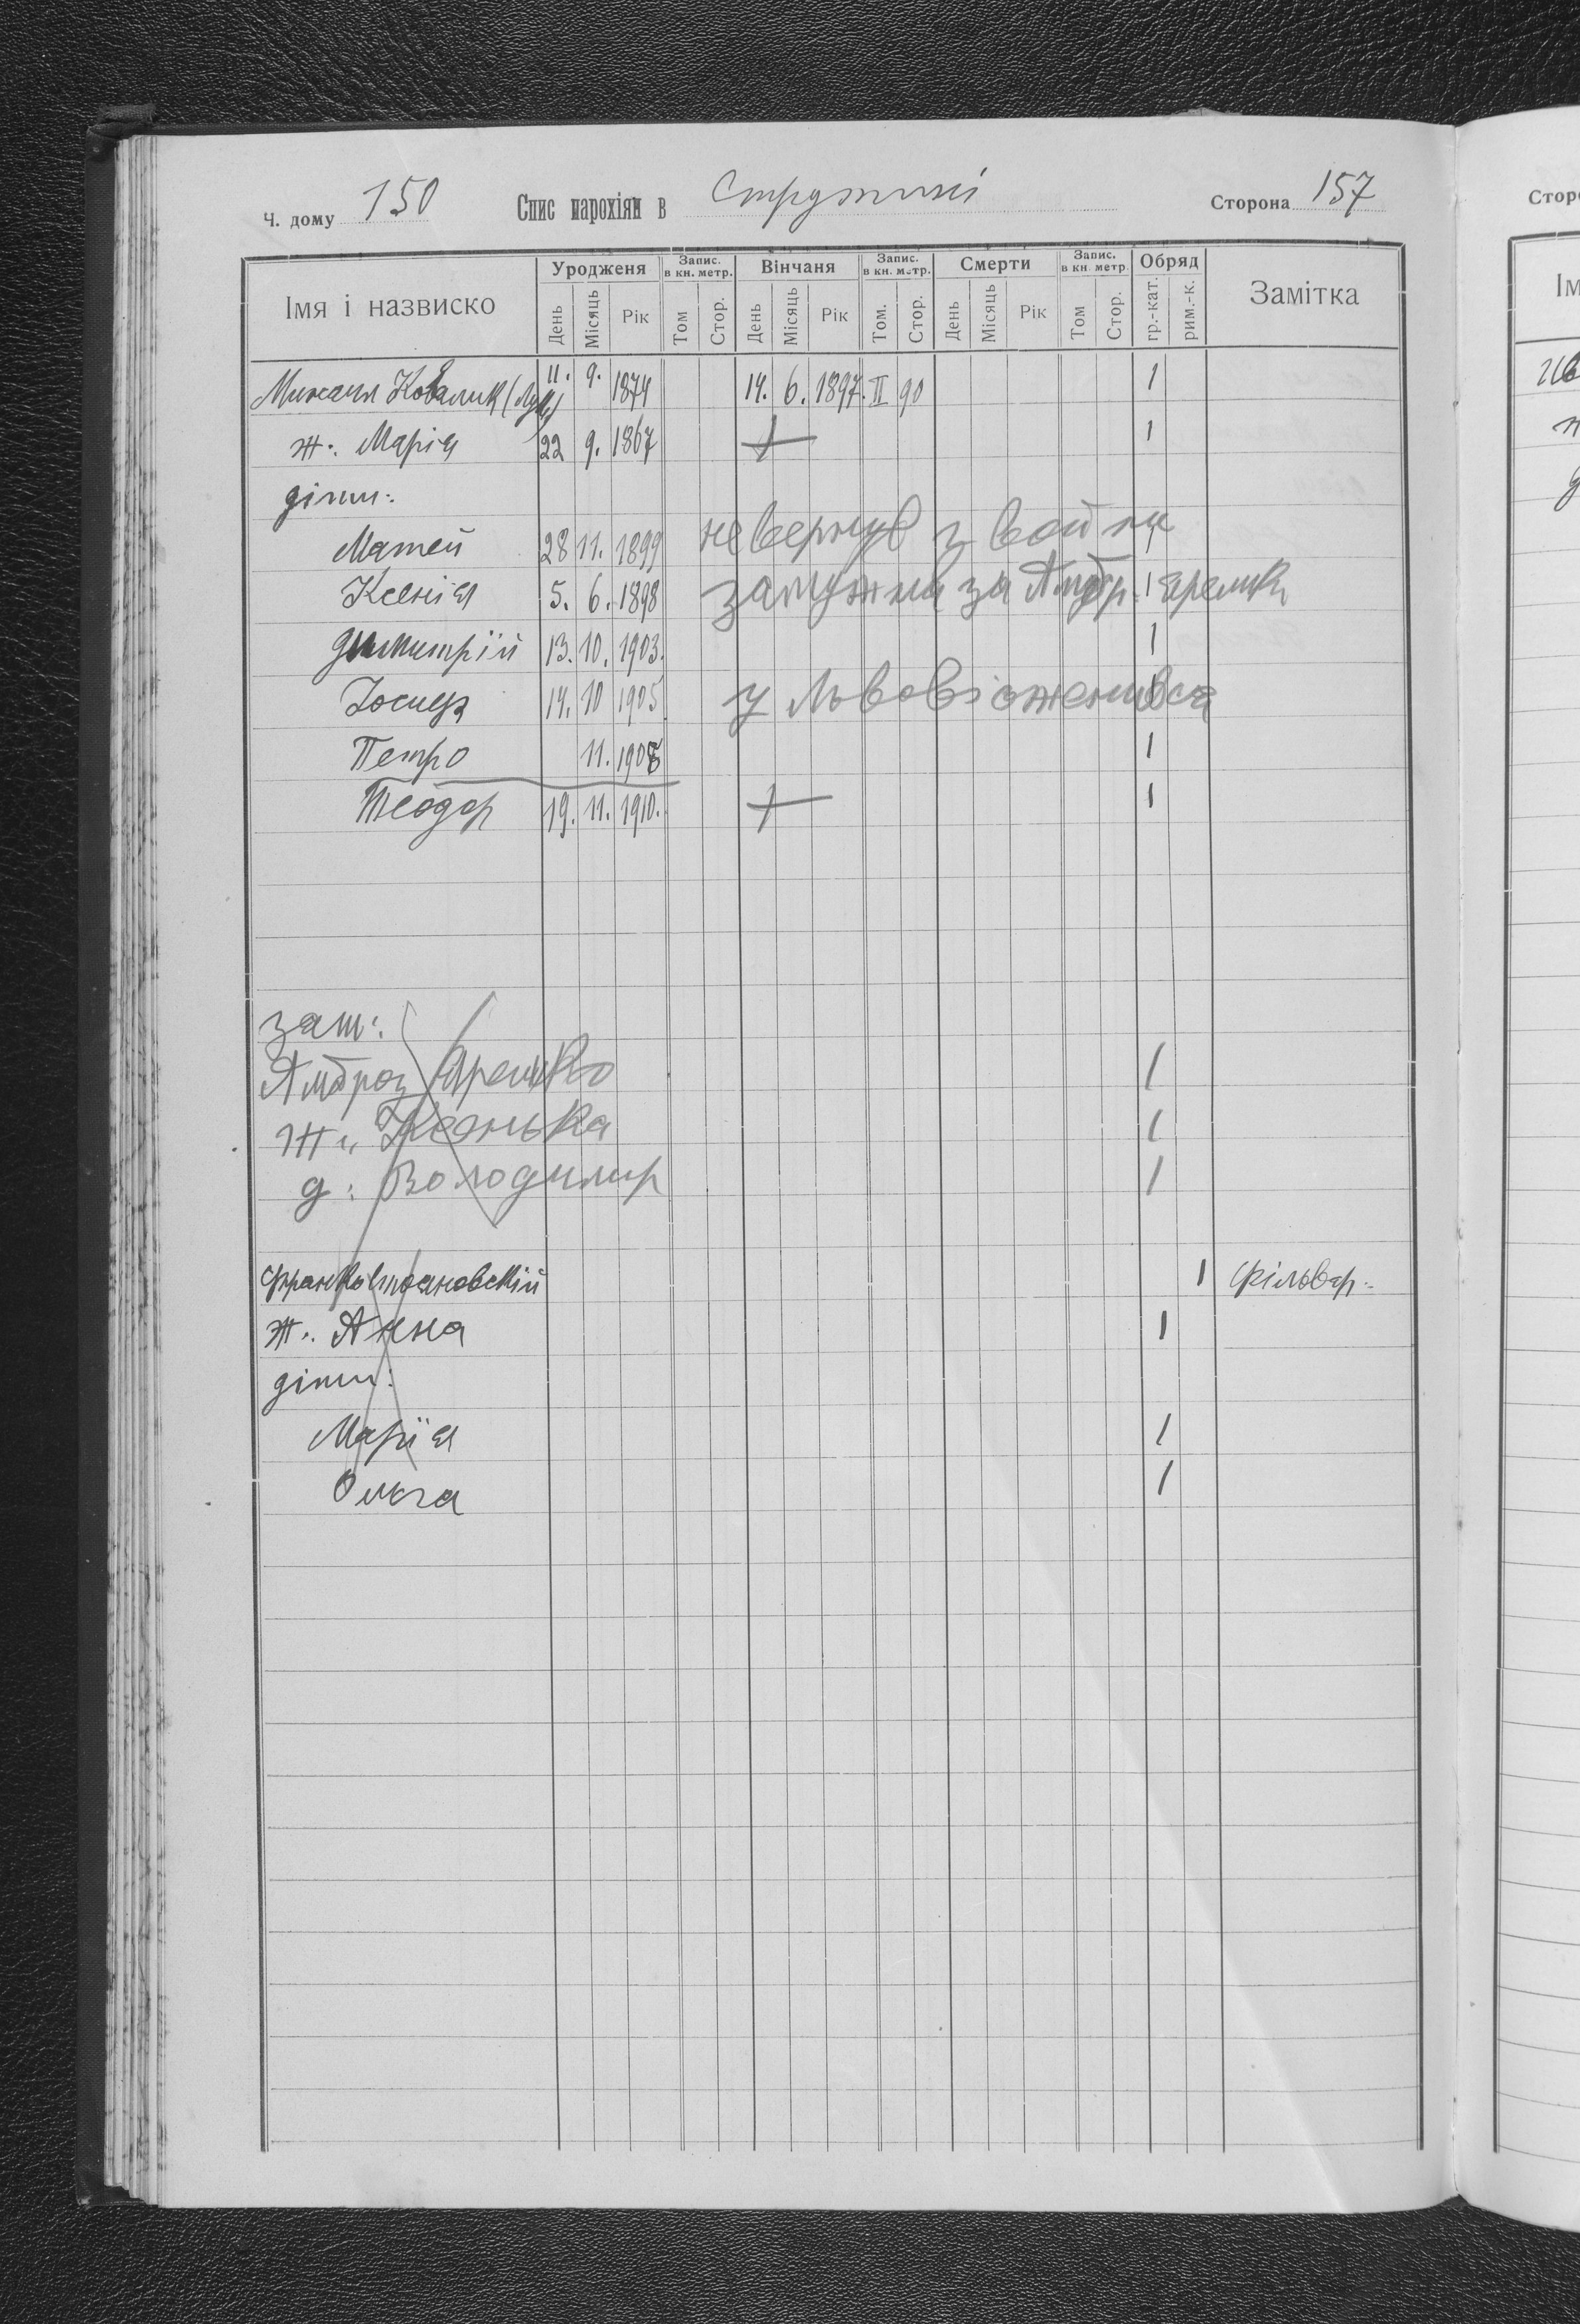 Ч. дому 150 Спис парохіян в Сторона 157
Імя і назвиско Уродженя Запис. в кн. метр. Вінчаня Запис. в кн. метр. Смерти Запис. в кн. метр. Обряд Замітка
День Місяць Рік Том Стор. День Місяць Рік Том. Стор. День Місяць Рік Том Стор. гр.-кат. рим.-к.
Михаил Ковалик 11. 9. 1874 14. 6. 1897. II 90 1
ж: Марія 22 9. 1867 + 1
діти:
Матей 28 11. 1899 не вернув з войни
Ксенія 5. 6. 1898 замужна за Амбр. 1 Яремко
Димитрій 13. 10. 1903. 1
Йосиф 14. 10 1905 у Львові оженився
Петро 11. 1908 1
Теодор 19. 11. 1910. + 1
зат:
Амброз Яремко 1
ж: Ксенька 1
д: Володимир 1
Франко 1 фільвар:
ж: Анна 1
діти:
Марія 1
Ольга 1
Сторо